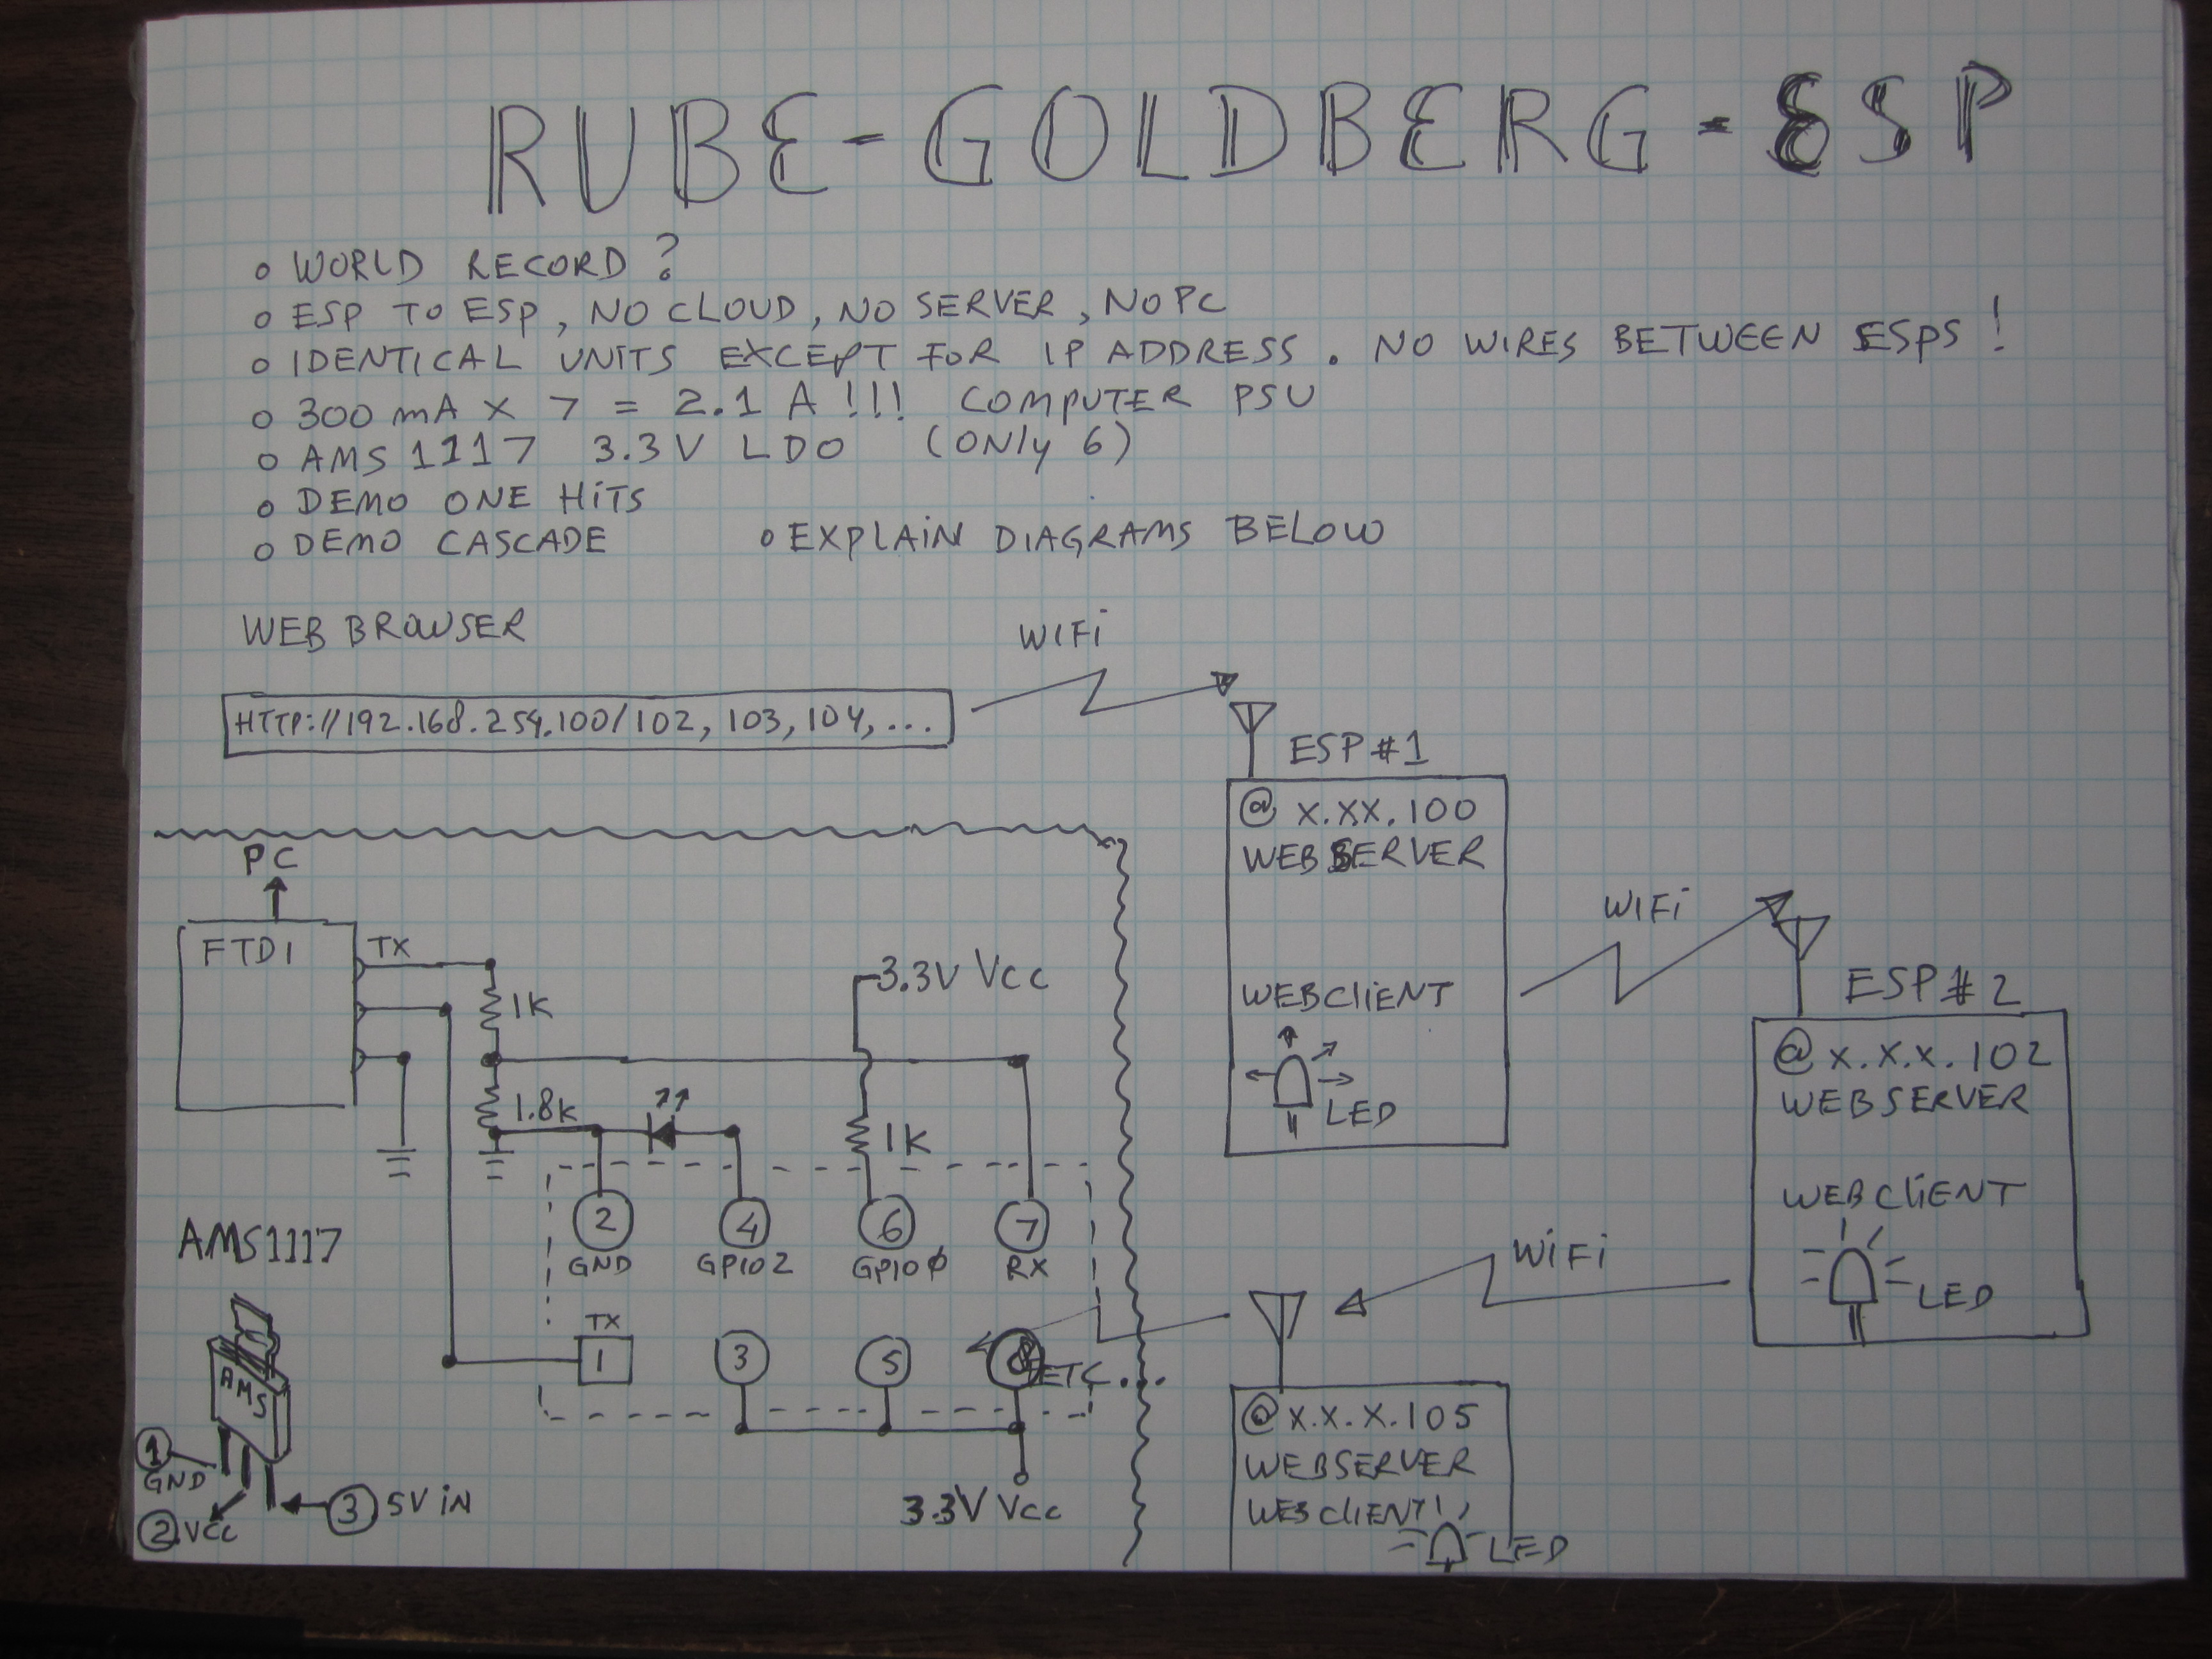 RUBE-GOLDBERG-ESP
o WORLD RECORD?
o ESP TO ESP, NO CLOUD, NO SERVER, NO PC
o IDENTICAL UNITS EXCEPT FOR IP ADDRESS. NO WIRES BETWEEN ESPS!
o 300 mA x 7 = 2.1 A!!! COMPUTER PSU
o AMS 1117 3.3V LDO (ONLY 6)
o DEMO ONE HITS
o DEMO CASCADE o EXPLAIN DIAGRAMS BELOW
WEB BROWSER
WIFI
HTTP://192.168.254.100/102, 103, 104, ...
ESP #1
@ x.xx.100
WEB SERVER
WEBCLIENT
LED
WIFI
ESP #2
@ x.x.x.102
WEBSERVER
WEBCLIENT
LED
WIFI
@ x.x.x.105
WEBSERVER
WEBCLIENT
LED
ETC...
PC
FTDI
TX
1K
3.3V Vcc
1.8K
1K
2
GND
4
GPIO2
6
GPIO0
7
RX
TX
1
3
5
3.3V Vcc
AMS1117
AMS
1
GND
2 VCC
3 5V IN